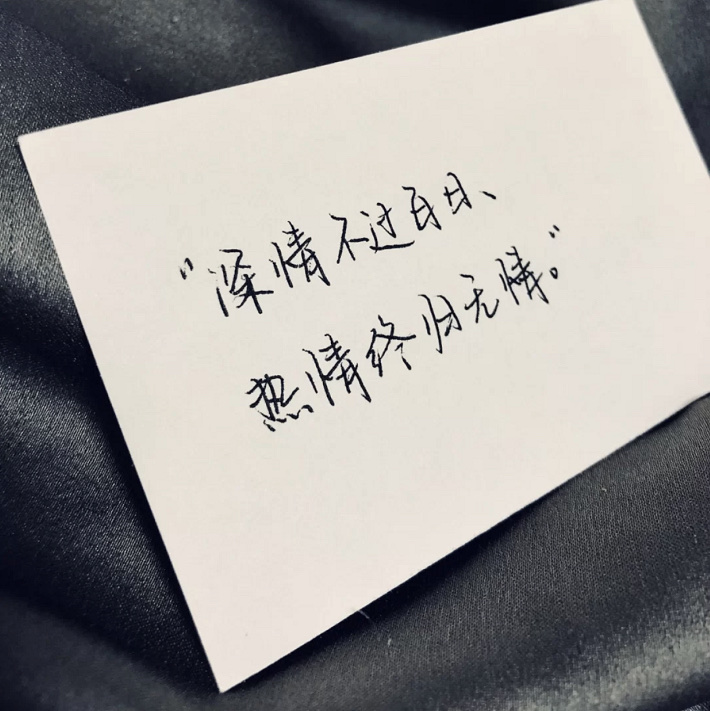 "深情不过百日、
热情终归无情。"